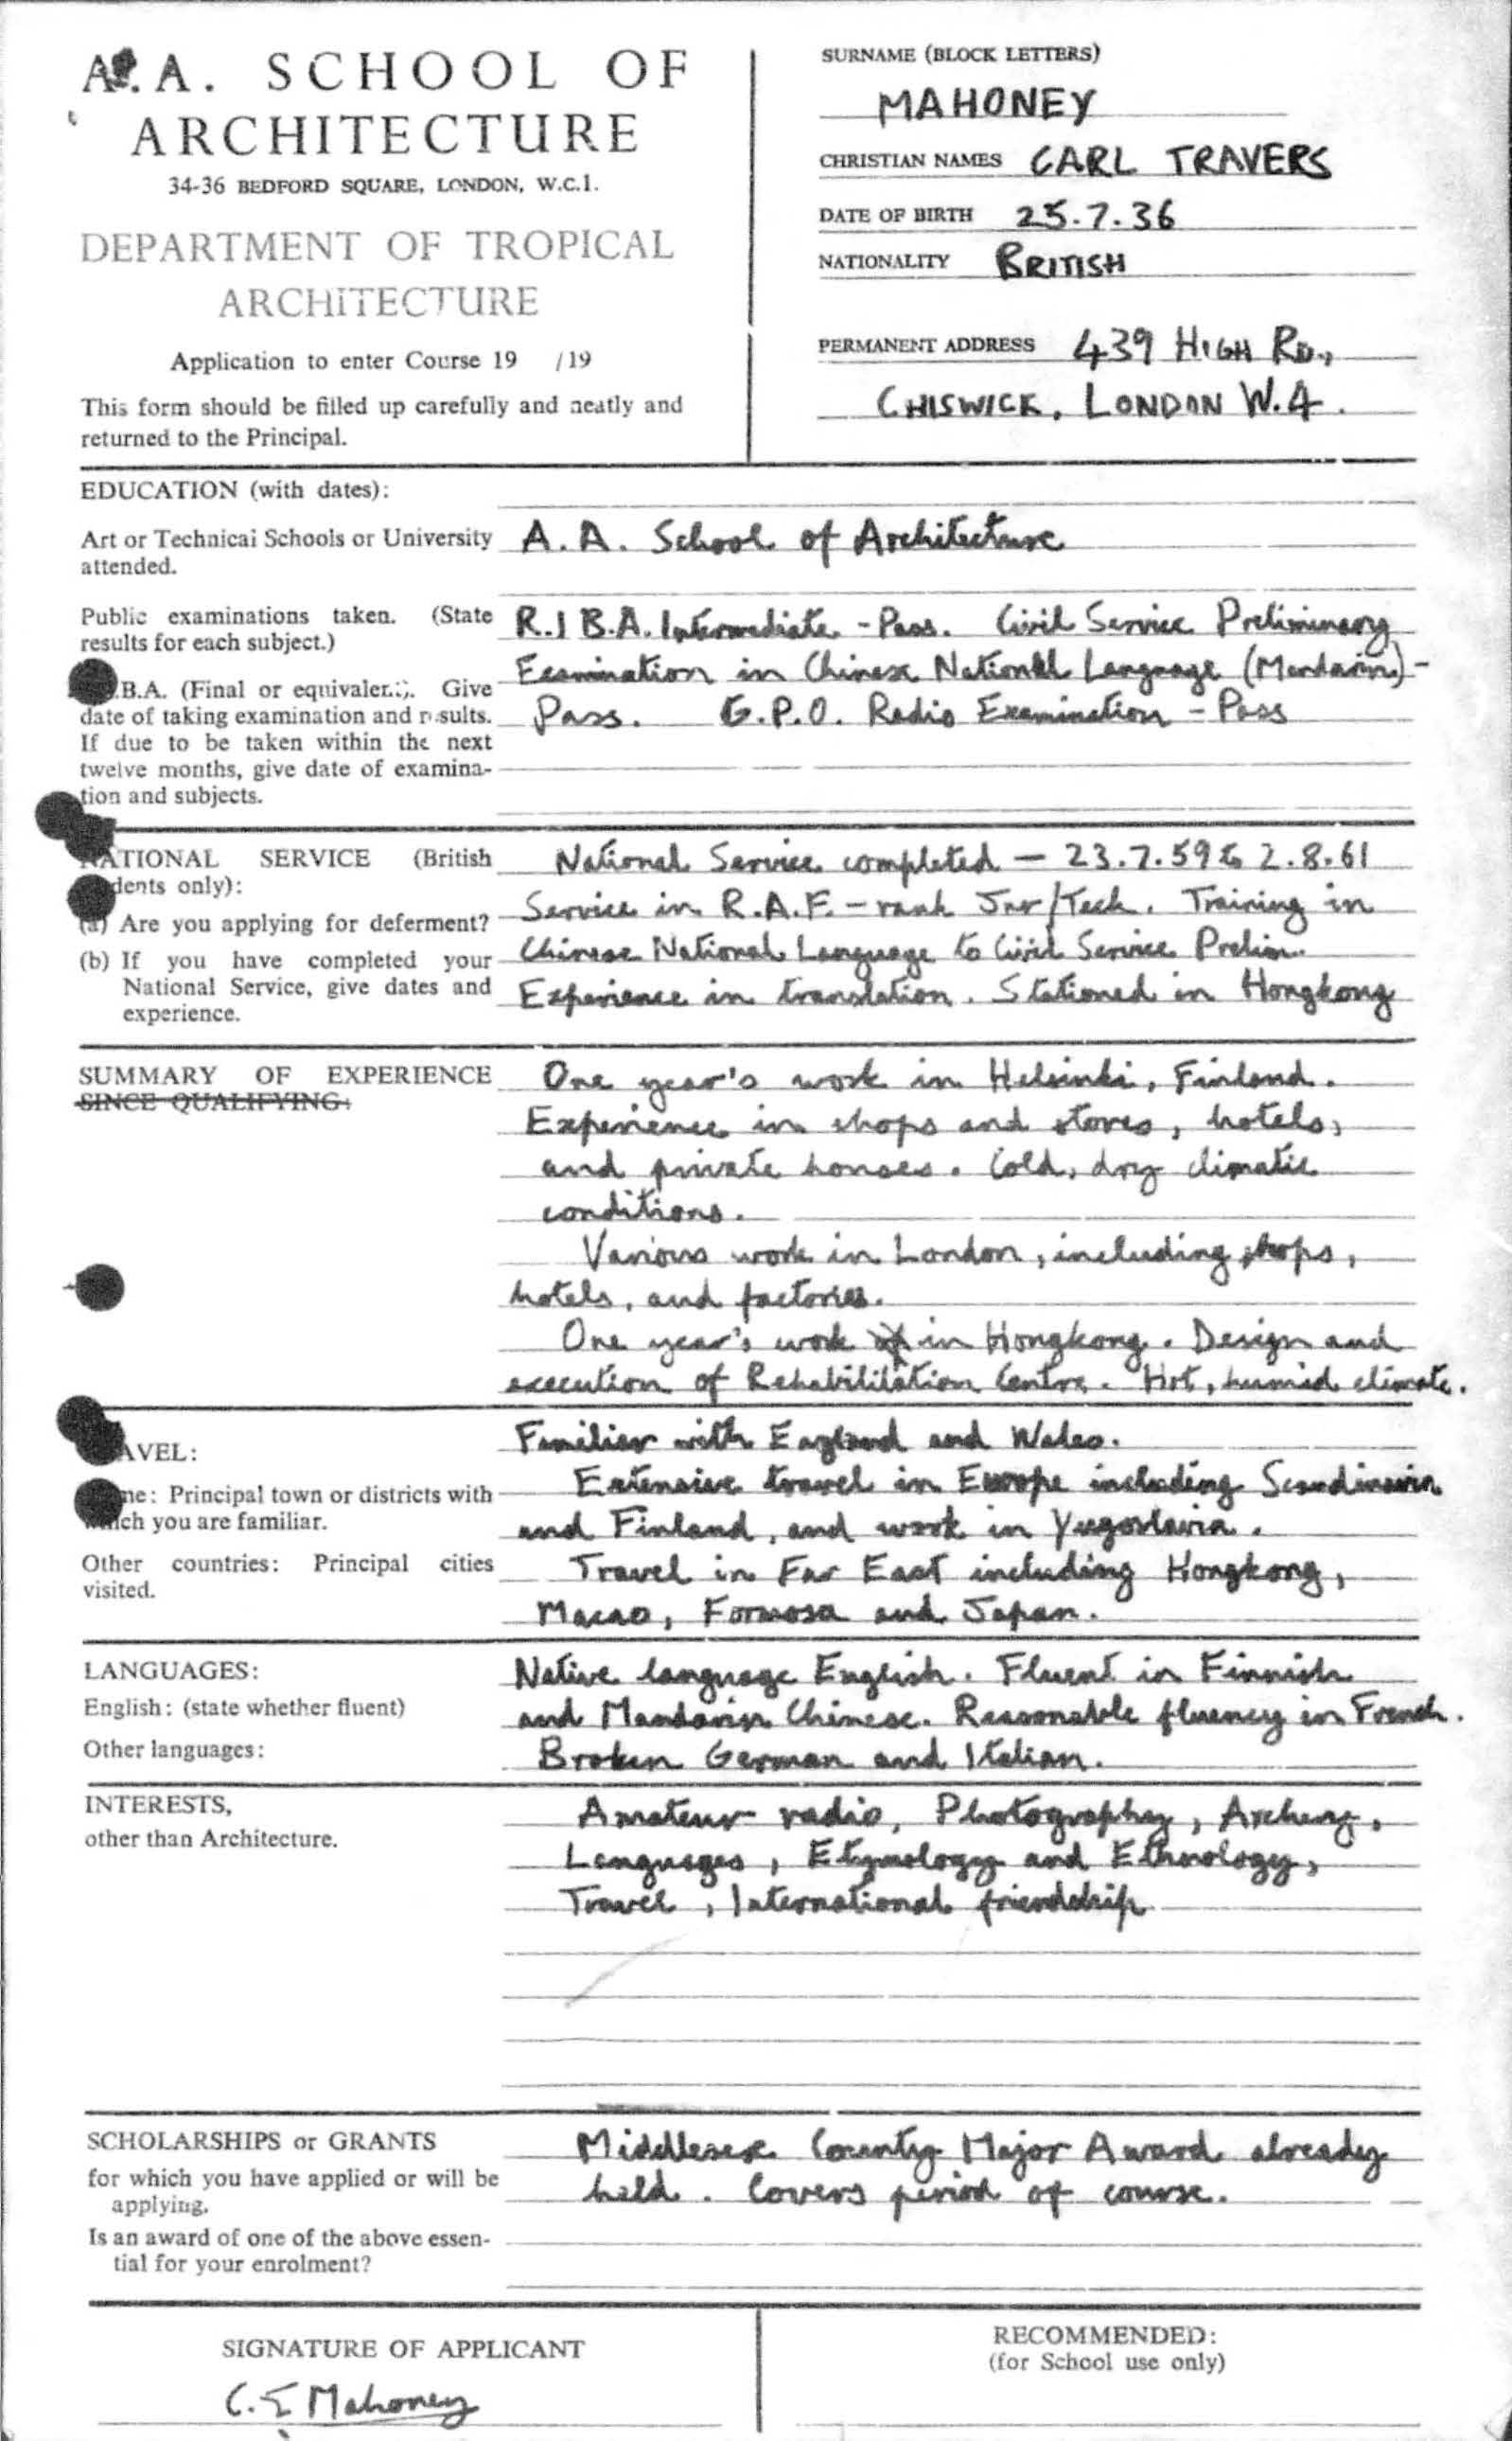 A.A. SCHOOL OF
ARCHITECTURE
34-36 BEDFORD SQUARE, LONDON, W.C.1.
DEPARTMENT OF TROPICAL
ARCHITECTURE
Application to enter Course 19 /19
This form should be filled up carefully and neatly and
returned to the Principal.
SURNAME (BLOCK LETTERS)
MAHONEY
CHRISTIAN NAMES CARL TRAVERS
DATE OF BIRTH 25.7.36
NATIONALITY BRITISH
PERMANENT ADDRESS 439 HIGH RD.,
CHISWICK, LONDON W.4.
EDUCATION (with dates):
Art or Technical Schools or University
attended.
A.A. School of Architecture
Public examinations taken. (State
results for each subject.)
B.A. (Final or equivalent). Give
date of taking examination and results.
If due to be taken within the next
twelve months, give date of examina-
tion and subjects.
R.I B.A. Intermediate - Pass. Civil Service Preliminary
Examination in Chinese National Language (Mandarin) -
Pass. G.P.O. Radio Examination - Pass
NATIONAL SERVICE (British
dents only):
(a) Are you applying for deferment?
(b) If you have completed your
National Service, give dates and
experience.
National Service completed - 23.7.59 to 2.8.61
Service in R.A.F. - rank Jnr/Tech. Training in
Chinese National Language to Civil Service Prelim.
Experience in translation. Stationed in Hongkong
SUMMARY OF EXPERIENCE
SINCE QUALIFYING:
One year's work in Helsinki, Finland.
Experience in shops and stores, hotels,
and private houses. Cold, dry climatic
conditions.
Various work in London, including shops,
hotels, and factories.
One year's work in Hongkong. Design and
execution of Rehabililation Centre. Hot, humid climate.
AVEL:
me: Principal town or districts with
which you are familiar.
Other countries: Principal cities
visited.
Familiar with England and Wales.
Extensive travel in Europe including Scandinavia
and Finland, and work in Yugoslavia.
Travel in Far East including Hongkong,
Macao, Formosa and Japan.
LANGUAGES:
English: (state whether fluent)
Other languages:
Native language English. Fluent in Finnish
and Mandarin Chinese. Reasonable fluency in French.
Broken German and Italian.
INTERESTS,
other than Architecture.
Amateur radio, Photography, Archery,
Languages, Etymology and Ethnology,
Travel, International friendship
SCHOLARSHIPS or GRANTS
for which you have applied or will be
applying.
Is an award of one of the above essen-
tial for your enrolment?
Middlesex County Major Award already
held. Covers period of course.
SIGNATURE OF APPLICANT
C.T Mahoney
RECOMMENDED:
(for School use only)